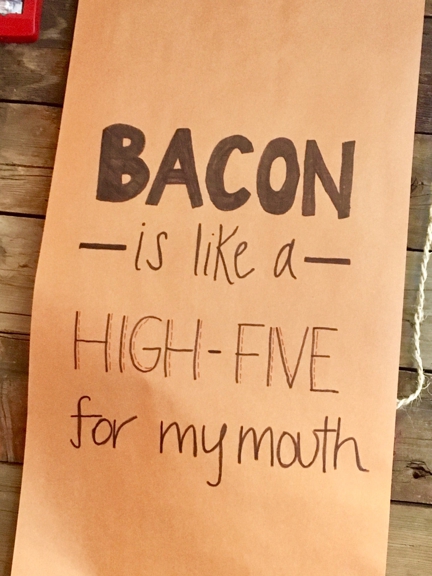 BACON
— is like a —
HIGH-FIVE
for my mouth